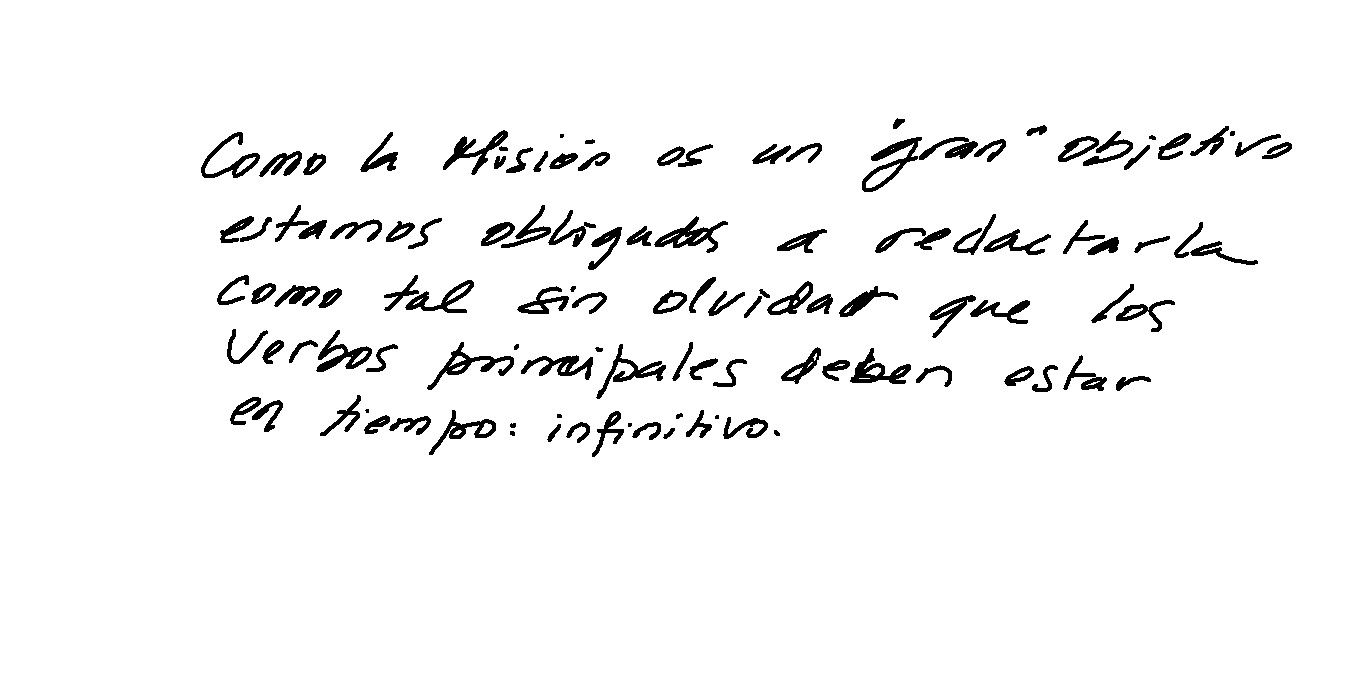 Como la Misión es un "gran" objetivo
estamos obligados a redactarla
como tal sin olvidar que los
Verbos principales deben estar
en tiempo: infinitivo.